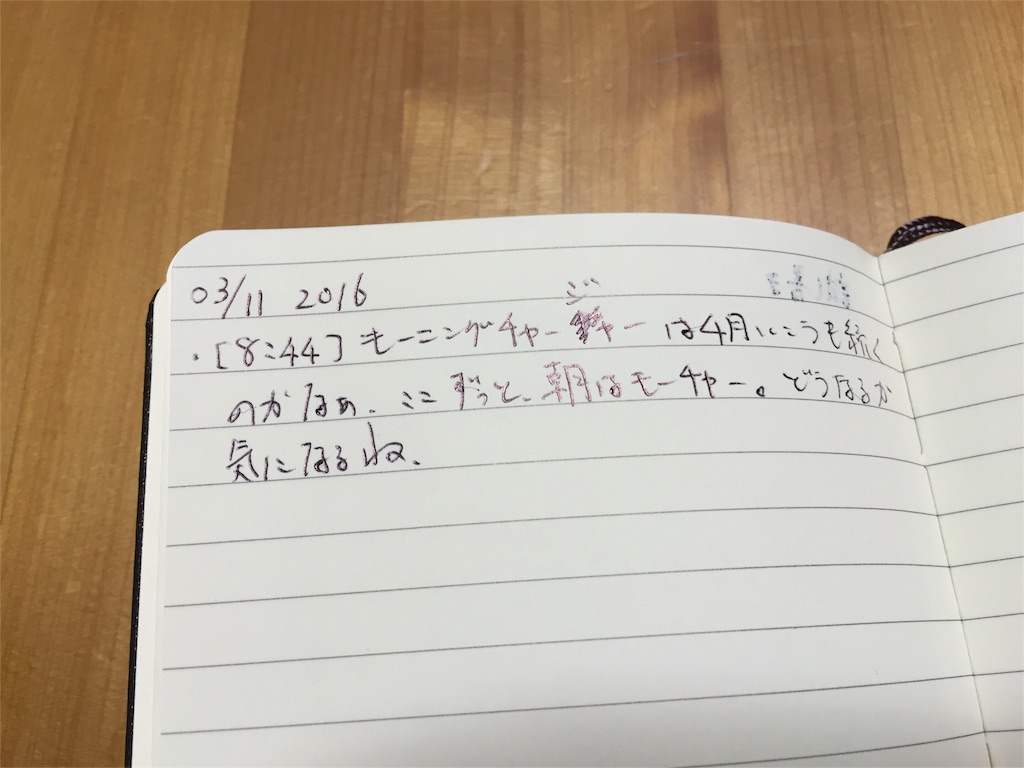 03/11 2016
・[8:44] モーニングチャージャー は4月いこうも続く
のかなぁ、ここずっと、朝はモーチャー。どうなるか
気になるね、